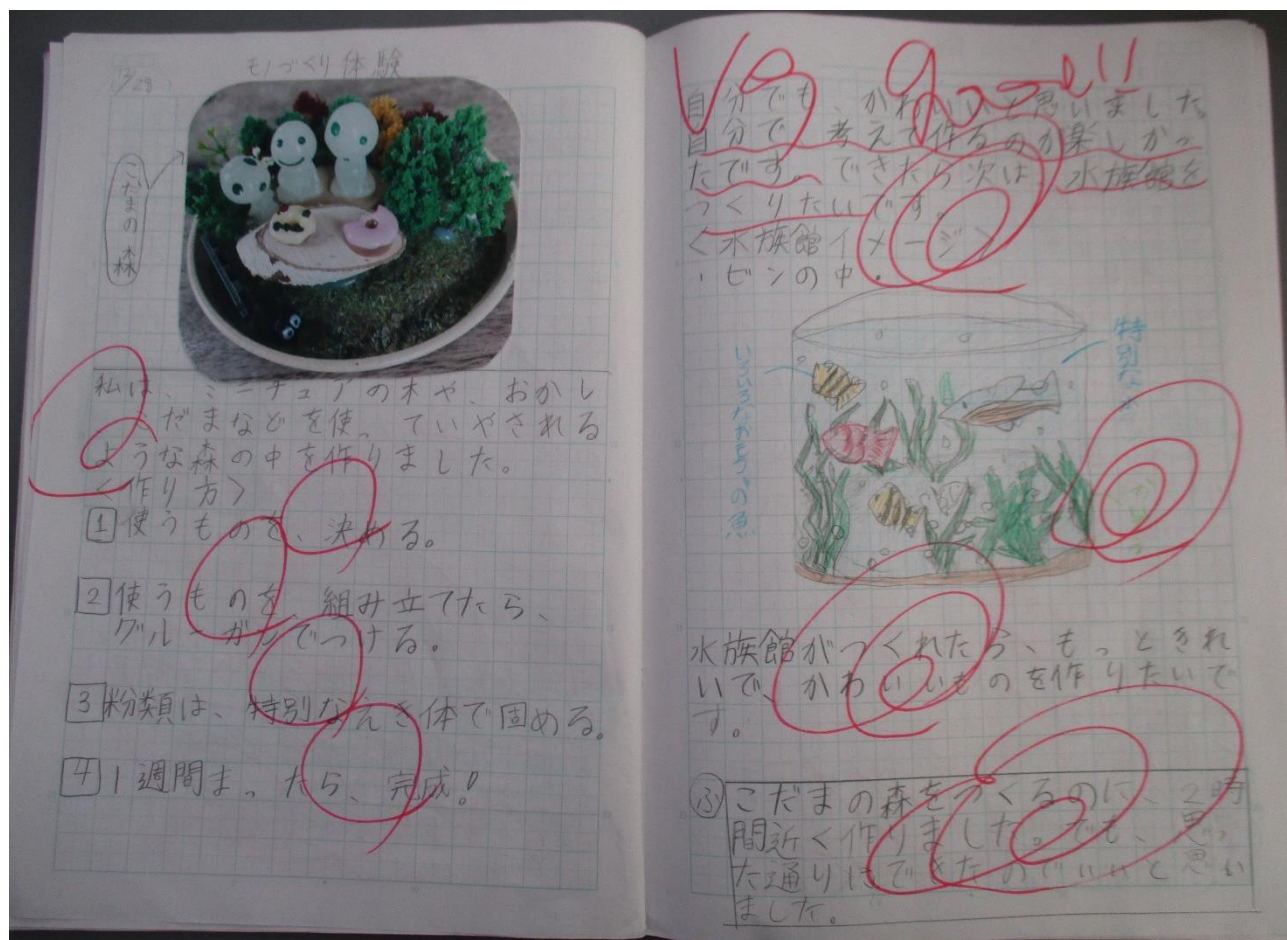 12/28
モノづくり体験
こだまの森
私は、ミニチュアの木や、おかし
だまなどを使っていやされる
ような森の中を作りました。
〈作り方〉
1 使うものを、決める。
2 使うものを、組み立てたら、
グルーガンでつける。
3 粉類は、特別なえき体で固める。
4 1週間まったら、完成!
Vg good!!
自分でも、かわいいと思いました。
自分で、考えて作るのが楽しかっ
たです。できたら次は、水族館を
つくりたいです。
〈水族館イメージ〉
・ビンの中・
特別な
いろいろなおもちゃの魚
水族館がつくれたら、もっときれ
いで、かわいいものを作りたいで
す。
ふ こだまの森をつくるのに、2時
間近く作りました。でも、思っ
た通りにできたのでいいと思い
ました。